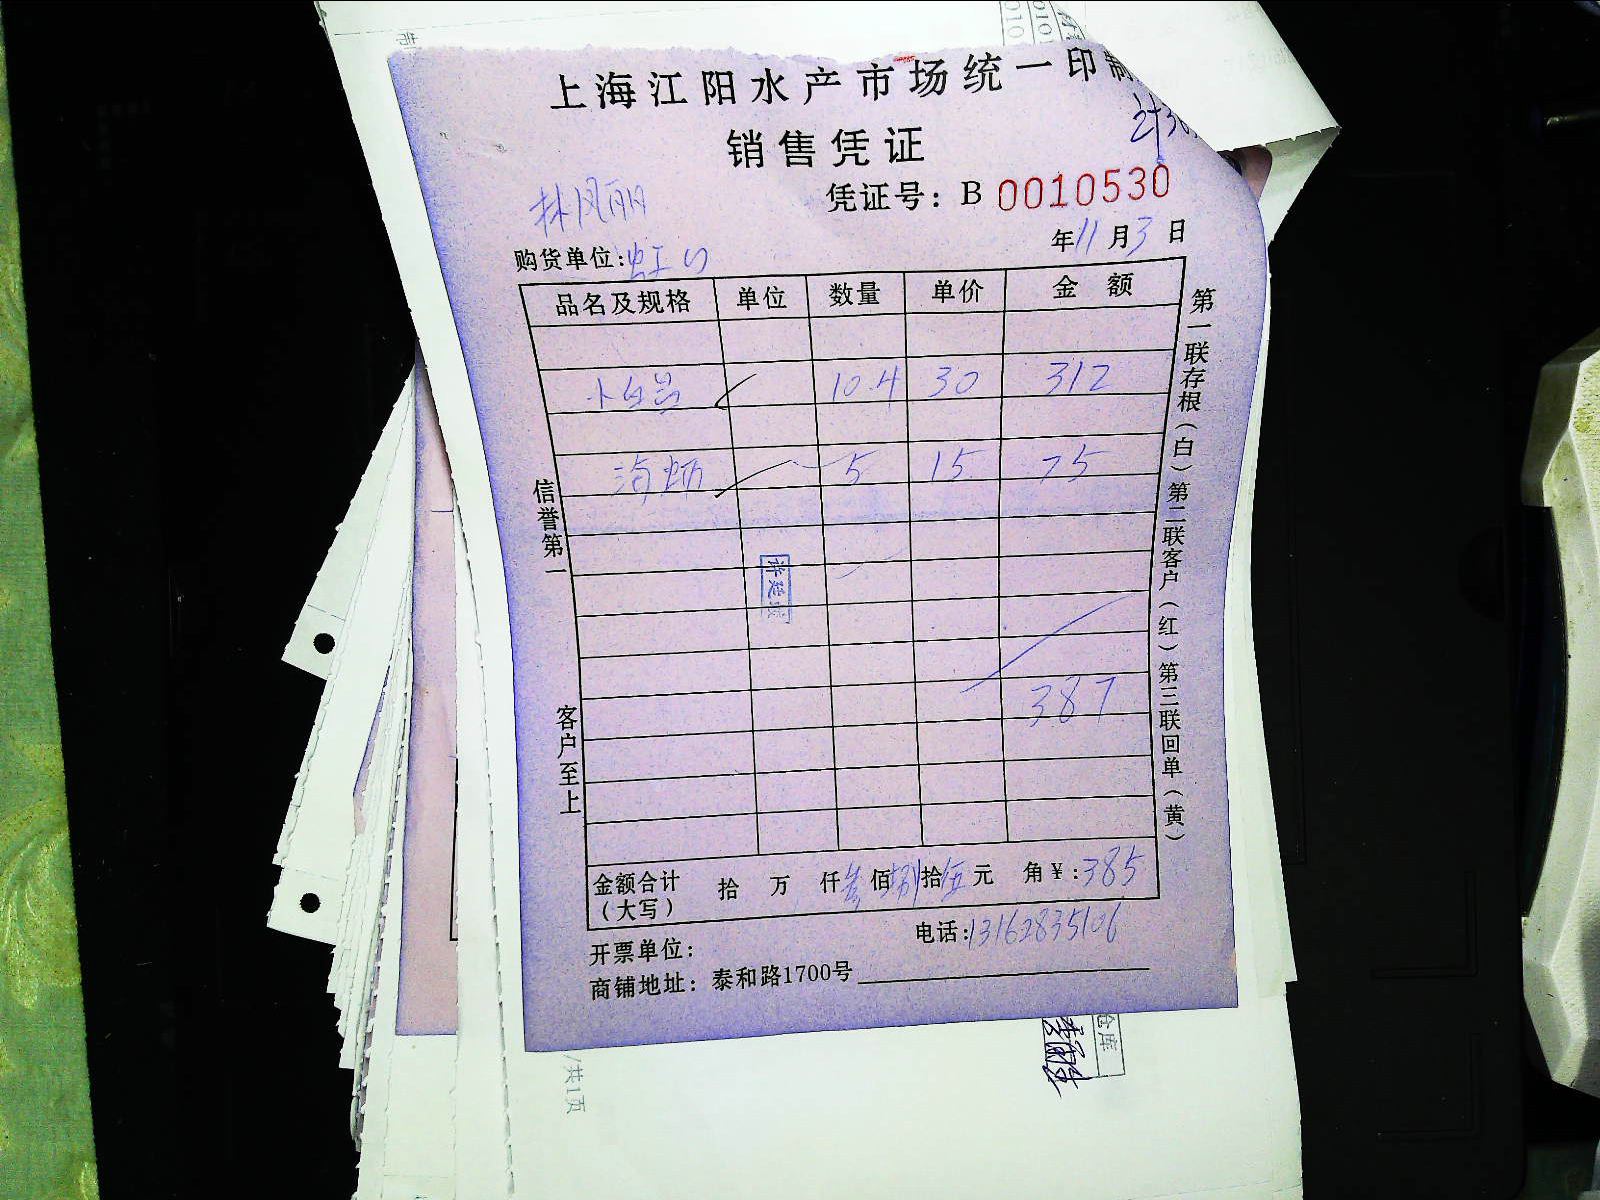 上海江阳水产市场统一印制
销售凭证
凭证号：B 0010530
林凤丽
年11月3日
购货单位:虹口
品名及规格 单位 数量 单价 金额
小白 10.4 30 312
海 5 15 75
387
金额合计（大写） 拾 万 仟叁佰捌拾伍元 角¥:385
电话:13162835106
开票单位：
商铺地址：泰和路1700号
信誉第一
客户至上
第一联存根（白）第二联客户（红）第三联回单（黄）
许延
仓库
/共1页